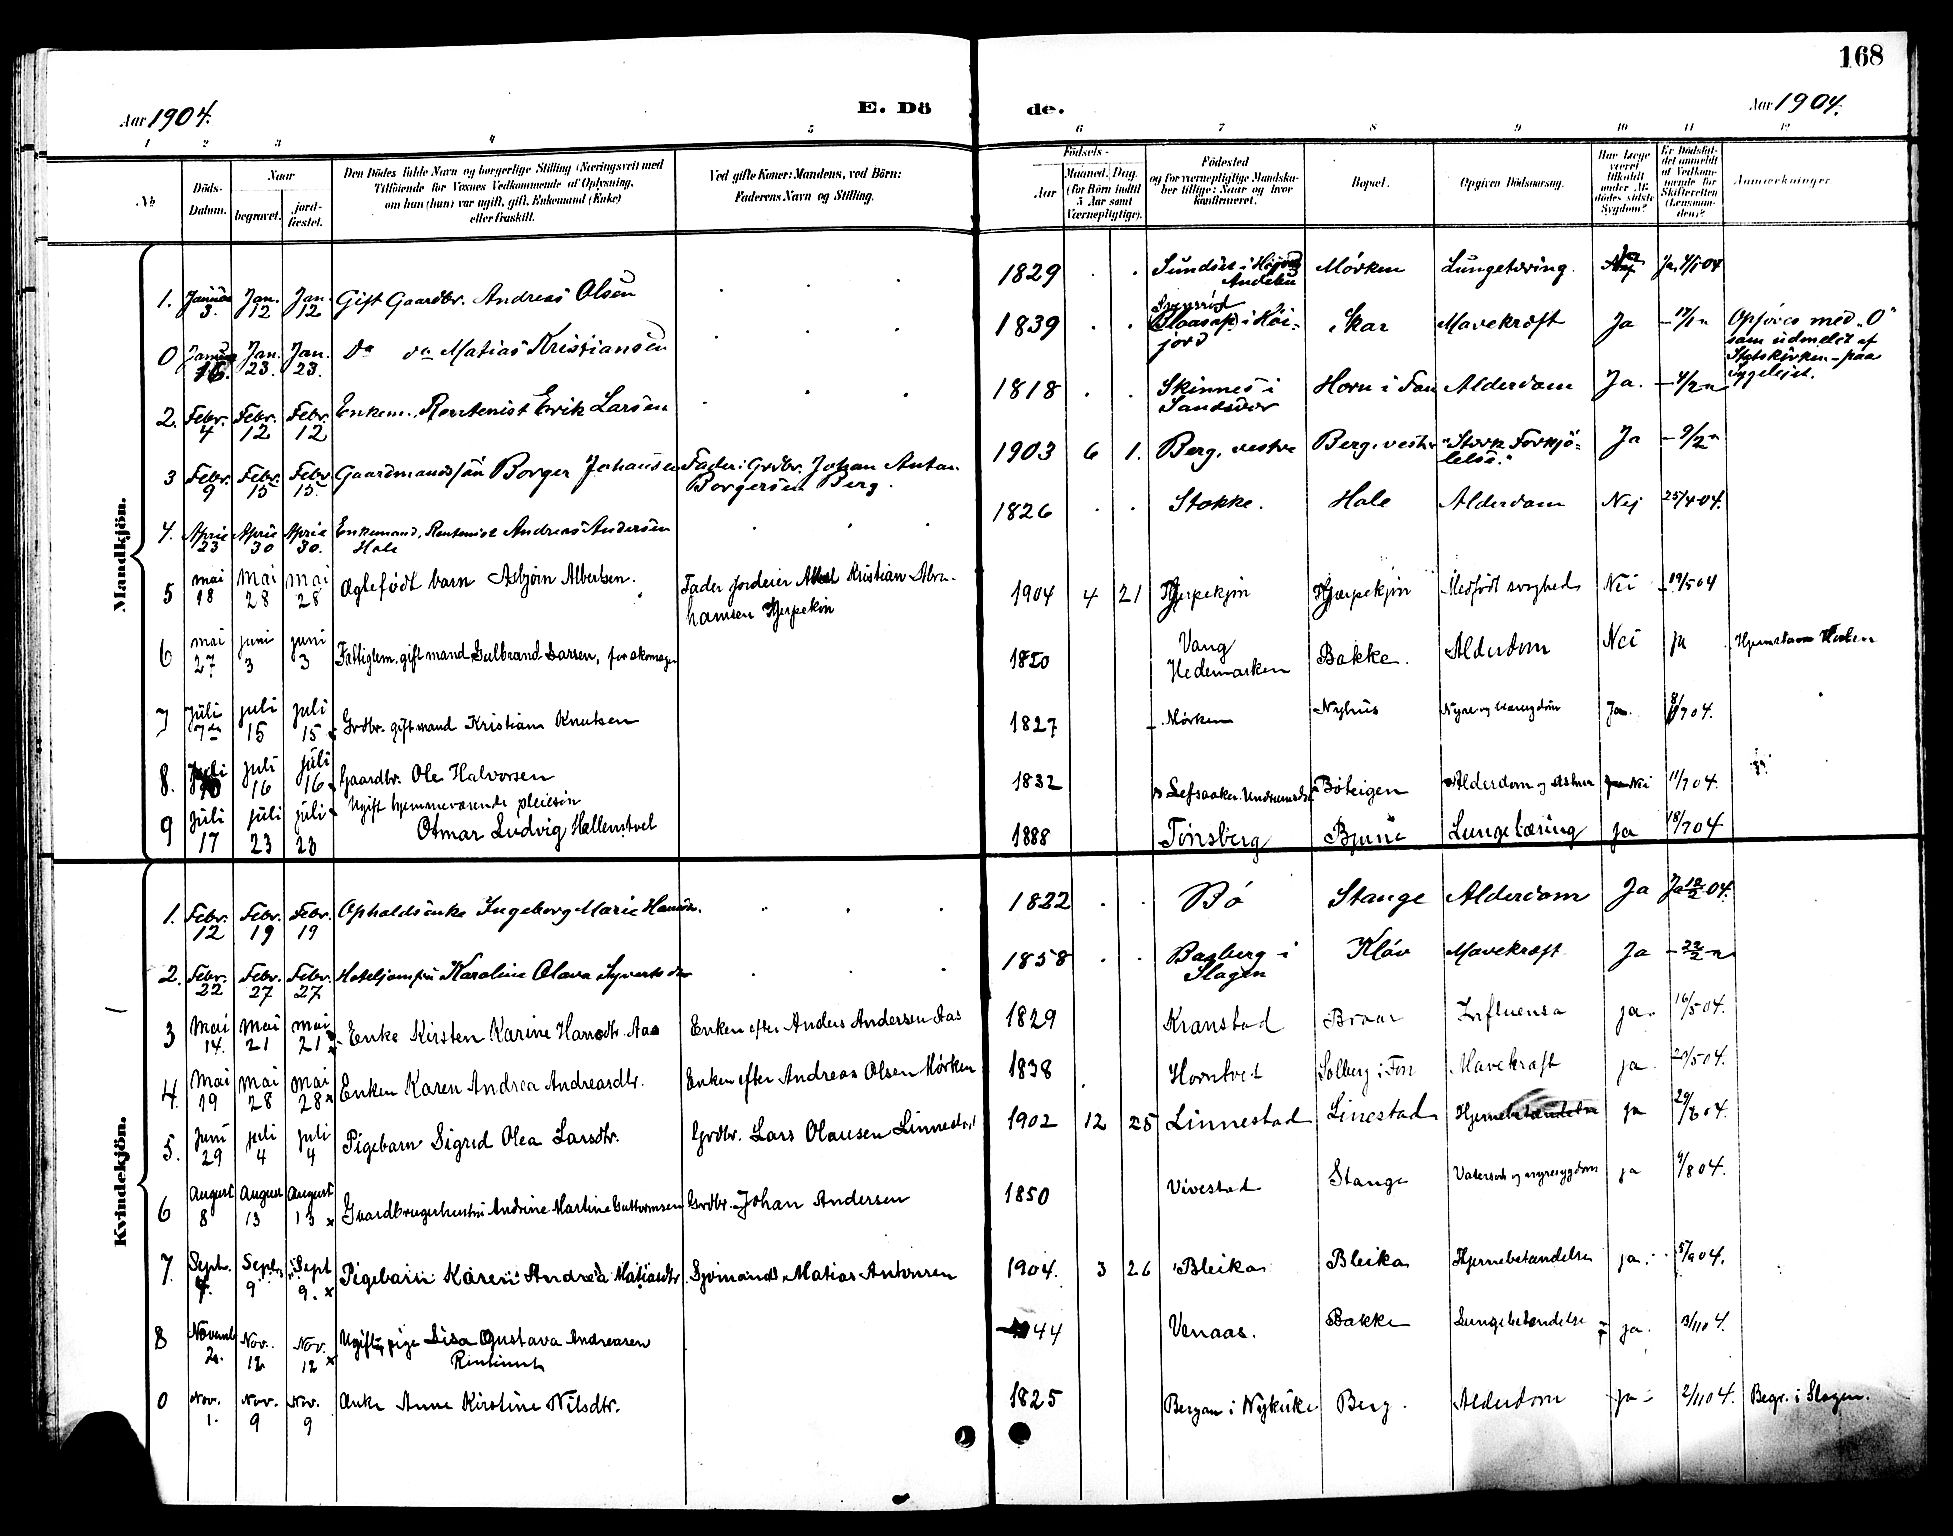 168
Aar 1904.
E. Dö
de.
Aar 1904.
1 2 3 4 5 6 7 8 9 10 11 12
No
Döds-
Datum.
Naar
begravet.
jord-
fæstet.
Den Dödes fulde Navn og borgerlige Stilling (Næringsvei) med
Tilföiende for Voxnes Vedkommende af Oplysning,
om han (hun) var ugift, gift, Enkemand (Enke)
eller fraskilt.
Ved gifte Koner: Mandens, ved Börn:
Faderens Navn og Stilling.
Födsels-
Aar
Maaned. Dag.
(for Börn indtil
5 Aar samt
Værnepligtige).
Födested
og for værnepligtige Mandska-
ber tillige: Naar og hvor
konfirmeret.
Bopæl.
Opgiven Dödsaarsag.
Har Læge
været
tilkaldt
under Af-
dödes sidste
Sygdom?
Er Dödsfal-
det anmeldt
af Vedkom-
mende for
Skifteretten
(Lensman-
den)?
Anmærkninger
Mandkjön.
1. Januar 3. Jan. 12 Jan. 12 Gift Gaardbr. Andreas Olsen 1829 Sundset i Høijord Andebu Mørken Lungetæring. Ja Ja 4/1 04
0 Januar 16. Jan. 23. Jan. 23. Do do Matias Kristiansen 1839 i Høi-
jord Skar Mavekræft Ja Opføres med "O"
som udmeldt af
Statskirken - paa
Sygelejet.
2. Febr. 4 Febr. 12 Febr. 12 Enkem. Rentenist Erik Larsen 1818 Skinnes i
Sandsvær Horn i Fon Alderdom Ja. - 4/2 "
3 Febr. 9 Febr. 15 Febr. 15. Gaardmandssøn Borger Johansen Fader: Grdbr. Johan Anton
Borgersen Berg. 1903 6 1. Berg, vestre Berg, vestre "Stærk Forkjø-
lelse." Ja - 9/2 "
4. April 23 April 30 April 30. Enkemand, Rentenist Andreas Andersen
Hole 1826 Stokke. Hole Alderdom Nej 25/4 04.
5 mai 18 mai 28 mai 28 Ægtefødt barn Asbjørn Albertsen. Fader jordeier Kristian Abra-
hamsen Hjerpekjøn 1904 4 21 Hjerpekjøn Hjerpekjøn Medfødt svaghed Nei - 19/5 04
6 mai 27 juni 3 juni 3 Fattiglem, gift mand Gulbrand Larsen, 1820 Vang
Hedemarken Bakke. Alderdom Nei ja
7 juli 7de juli 15 juli 15 x Grdbr. gift mand Kristian Knutsen 1827 Mørken Nyhus Ja. 8/7 04.
8. juli 10 juli 16 juli 16 x Gaardbr. Ole Halvorsen 1832 Bøteigen Alderdom og Astma Nei 11/7 04.
9 juli 17 juli 23 juli 23 Ugift hjemmeværende pleiesøn
Otmar Ludvig Hallenstvet 1888 Tønsberg Bjune Lungetæring ja 18/7 04
Kvindekjön.
1. Febr. 12 Febr. 19 Febr. 19 Opholdsenke Ingeborg Marie Hansdr. 1822 Bø Stange Alderdom Ja Ja 12/2 04.
2. Febr. 22 Febr. 27 Febr. 27 Hoteljomfru Karoline Olava Syvertsdtr 1858 Basberg i
Slagen Kløv Mavekræft Ja - 22/2 "
3 Mai 14. Mai 21 mai 21 x Enke Kirsten Karine Hansdtr. Aas Enken efter Anders Andersen Aas 1829 Kranstad Braar Influensa ja. 16/5 04.
4. Mai 19 Mai 28 Mai 28 x Enken Karen Andrea Andreasdtr. Enken efter Andreas Olsen Mørken 1838 Horntvet Solberg i Fon Mavekræft ja. 20/5 04.
5. Juni 29 juli 4 juli 4 Pigebarn Sigrid Olea Larsdtr. Grdbr. Lars Olausen Linnestad 1902 12 25 Linnestad Linestad Hjernebetændelse ja 29/6 04.
6 August 8 August 13 August 13 x Gaardbrugerhustru Andrine Martine Guttormsen Grdbr. Johan Andersen 1850 Vivestad Stange Vatersot og nyresygdom ja 9/8 04.
7. Sept. 4. Sept. 9 Sept 9. x Pigebarn Karen Andrea Matiasdtr. Sjømand Matias Antonsen 1904. 3 26 Bleika Bleika Hjernebetændelse ja. 5/9 04.
8 Novemb 2. Nov. 12 Nov. 12 x Ugift pige Lisa Gustava Andreasen
Rentenist 44 Venaas. Bakke Lungebetændelse ja. 3/11 04.
0 Nov. 1. Nov. 9 Nov. 9 Enke Anne Kirstine Nilsdtr. 1825 Bergan i Nykirke Berg. Alderdom ja 2/11 04. Begr. i Slagen.